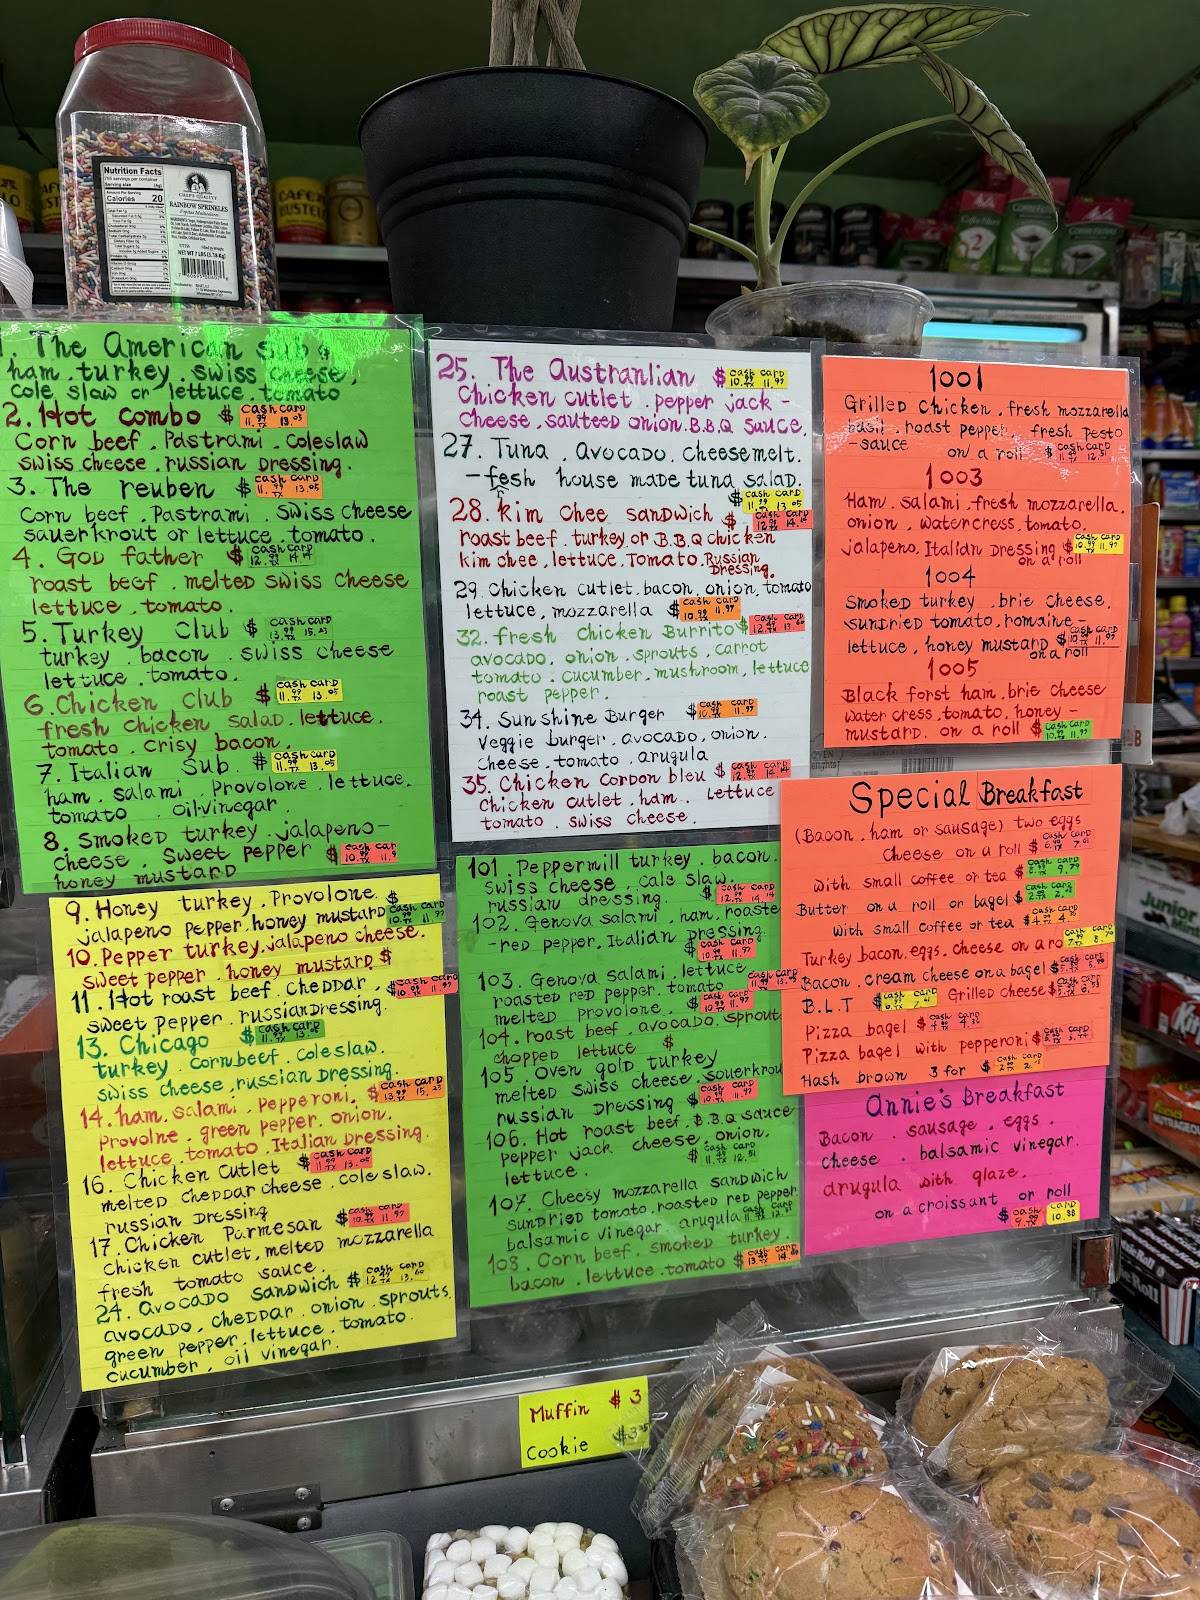 Nutrition Facts
Calories 20
CHEF'S QUALITY
RAINBOW SPRINKLES
NET WT 7 LBS (3.18 Kg)
CAFÉ
BUSTELO
1. The American sub $
ham . turkey . swiss cheese .
cole slaw or lettuce . tomato
2. Hot combo $ cash 11.99 TX card 13.05
Corn beef . Pastrami . coleslaw
swiss cheese . russian dressing .
3. The reuben $ cash 11.99 TX card 13.05
Corn beef . Pastrami . swiss cheese
sauerkrout or lettuce . tomato .
4. God father $ cash 12.99 TX card 14.14
roast beef . melted swiss cheese
lettuce . tomato .
5. Turkey Club $ cash 13.99 TX card 15.23
turkey . bacon . swiss cheese
lettuce . tomato .
6. Chicken Club $ cash 11.99 TX card 13.05
fresh chicken salad . lettuce .
tomato . crisy bacon .
7. Italian Sub . $ cash 11.99 TX card 13.05
ham . salami . Provolone . lettuce .
tomato . oil vinegar
8. Smoked turkey . jalapeno-
cheese . Sweet pepper $ cash card 10.99
honey mustard
9. Honey turkey . Provolone . $
jalapeno pepper, honey mustard cash 10.99 TX card 11.97
10. Pepper turkey . jalapeno cheese .
sweet pepper . honey mustard $
11. Hot roast beef . cheddar , cash 10.99 TX card 11.97
sweet pepper . russian dressing .
13. Chicago $ cash 11.99 TX card 13.05
turkey . corn beef . coleslaw .
swiss cheese . russian dressing .
14. ham . salami . pepperoni . $ cash 13.99 TX card 15.23
Provolne . green pepper . onion .
lettuce . tomato . Italian dressing .
16. Chicken Cutlet $ cash 11.99 TX card 13.05
melted cheddar cheese . cole slaw .
russian dressing
17. Chicken Parmesan $ cash 10.99 TX card 11.97
chicken cutlet, melted mozzarella
fresh tomato sauce .
24. avocado sandwich $ cash card 13.60
avocado, cheddar . onion . sprouts .
green pepper . lettuce . tomato .
cucumber . oil vinegar .
25. The Austranlian $ cash 10.99 TX card 11.97
Chicken cutlet . pepper jack -
Cheese . sauteed onion . B.B.Q sauce .
27. Tuna . Avocado . cheese melt .
- fesh house made tuna salad .
r
$ cash 11.99 TX card 13.05
28. Kim chee sandwich $ cash 12.99 card 14.14
roast beef . turkey . or B.B.Q chicken
kim chee , lettuce . Tomato . Russian
Dressing .
29. Chicken cutlet, bacon, onion, tomato
lettuce, mozzarella $ cash 10.99 card 11.97
32. fresh Chicken Burrito $ cash card 13.60
avocado . onion . sprouts . carrot
tomato . cucumber . mushroom , lettuce
roast pepper .
34. Sunshine Burger $ cash 10.99 card 11.97
Veggie burger . avocado, onion .
cheese . tomato . arugula
35. Chicken Cordon bleu $ cash 12.99 card 14.14
Chicken cutlet . ham . lettuce
tomato . swiss cheese .
101. Peppermill turkey . bacon .
swiss cheese . cale slaw .
russian dressing . $ cash 12.99 TX card 14.14
102. Genova salami . ham . roaste
- red pepper . Italian Dressing .
$ cash 10.99 TX card 11.97
103. Genova salami . lettuce
roasted red pepper . tomato cash card
melted provolone . $ cash 10.99 TX card 11.97
104. roast beef . avocado . sprout
chopped lettuce $
105. Oven gold turkey
melted swiss cheese . souerkrou
russian dressing $ cash 10.99 TX card 11.97
106. Hot roast beef, B.B.Q sauce
pepper jack cheese, onion .
lettuce . $ cash card 12.51
107. Cheesy mozzarella sandwich
sundried tomato . roasted red pepper
balsamic vinegar . arugula $ cash card
108. Corn beef . smoked turkey .
bacon . lettuce . tomato $ cash card
1001
Grilled Chicken . fresh mozzarella
basil . roast pepper . fresh pesto
- sauce on a roll $ cash card 12.51
1003
Ham . salami . fresh mozzarella .
onion . watercress, tomato .
jalapeno, Italian Dressing $ cash 10.99 TX card 11.97
on a roll
1004
Smoked turkey . brie cheese,
sundried tomato, romaine -
lettuce , honey mustard $ cash 10.99 card 11.97
on a roll
1005
Black forst ham . brie cheese
water cress . tomato, honey -
mustard . on a roll $ cash 10.99 TX card 11.97
Special Breakfast
(Bacon . ham or sausage) two eggs
cheese on a roll $ cash card
with small coffee or tea $ cash card 9.79
Butter on a roll or bagel $ cash card
with small coffee or tea $ cash card
Turkey bacon, eggs, cheese on a ro
Bacon . cream cheese on a bagel $ cash card
B.L.T $ cash card Grilled cheese $ cash card
Pizza bagel $ cash card
Pizza bagel with pepperoni $ cash card
Hash brown 3 for $ cash card
Annie's Breakfast
Bacon . sausage . eggs .
cheese . balsamic vinegar .
arugula with glaze .
on a croissant or roll
$ cash 9.99 TX card 10.88
Muffin $ 3
Cookie